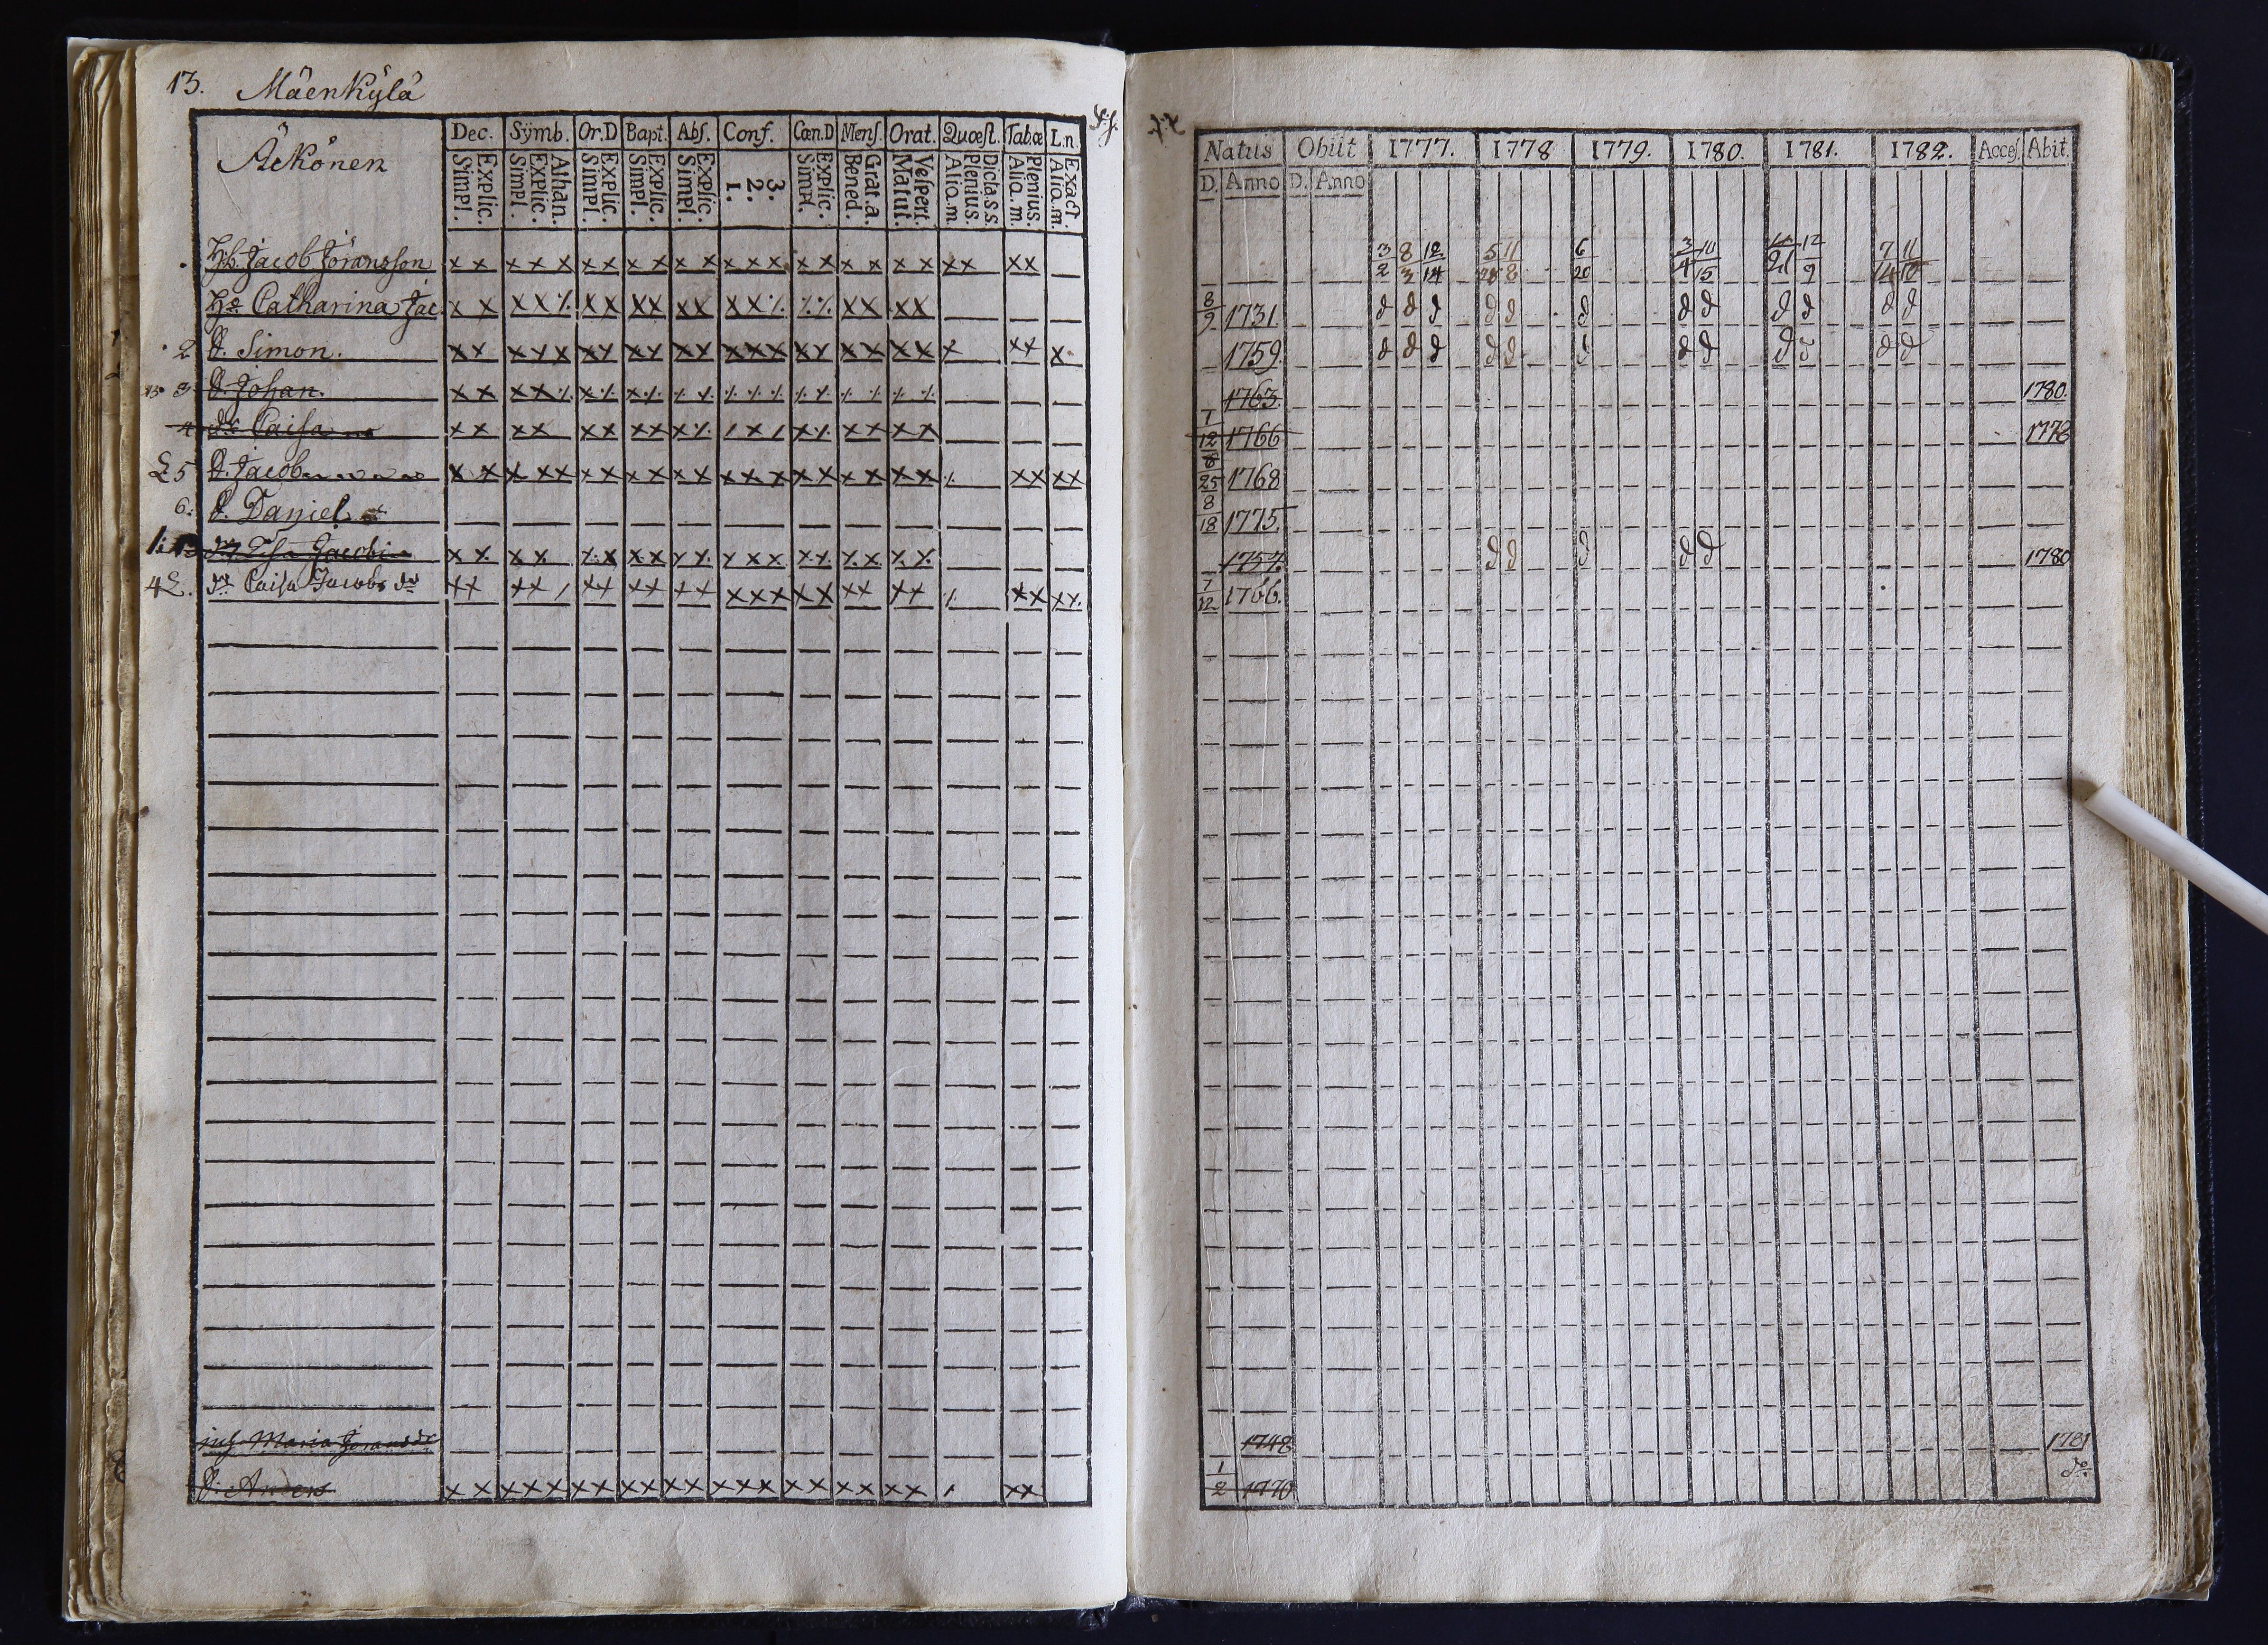 13. Mäenkylä
Äckönen
Dec. Symb. Or.D Bapt. Abſ. Conf. Cœn.D Menſ. Orat. Quœſt. Tab.œ L.n.
Explic. Simpl. Athan. Explic. Simpl. Explic. Simpl. Explic. Simpl. Explic. Simpl. 3. 2. 1. Explic. Simpl. Grat.a. Bened. Veſpert. Matut. Dicta.s.s. Plenius. Alio.m. Plenius. Alio.m. Exact Alio.m.
Hb. Jacob Jöransson x x x x x x x x x x x x x x x x x x x x x x x x
H:a Catharina Jac. x x x x ⁒ x x x x x x x x ⁒ ⁒ ⁒ x x x x
2 S. Simon. x x x x x x x x x x x x x x x x x x x x x x x x
3 S. Johan. x x
4 dr Caisa x x x x x x x x
5 S. Jacob x x x x x x x x x x x x x x x x x x x x x x x x x
6: S. Daniel
Jacobi x x x x
4 dr Caisa Jacobs dr x x x x / x x x x x x x x x x x x x x x x x
Maria Jörans dr
S. Anders x x x x x x x x x x x x x x x x x x x x x x x
Natus Obiit 1777. 1778 1779. 1780. 1781. 1782. Acceſ. Abit.
D. Anno D. Anno
3 8 12 5 11 6 3 10 12 7 11
2 3 14 28 8 20 4 15 21 9 14 10
8
9 1731 d d d d d d d d d d d d
1759. d d d d d d d d d d d d
1763. 1780.
7
12 1766 1778
25 1768
8
18 1775
1757. d d d d d 1780
7
12 1766.
1748 1781
1
2 1770 do